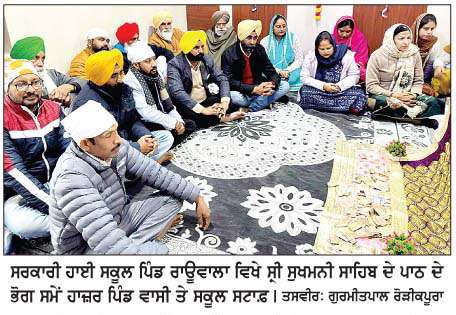 ਸਰਕਾਰੀ ਹਾਈ ਸਕੂਲ ਪਿੰਡ ਰਾਊਵਾਲਾ ਵਿਖੇ ਸ੍ਰੀ ਸੁਖਮਨੀ ਸਾਹਿਬ ਦੇ ਪਾਠ ਦੇ
ਭੋਗ ਸਮੇਂ ਹਾਜ਼ਰ ਪਿੰਡ ਵਾਸੀ ਤੇ ਸਕੂਲ ਸਟਾਫ਼। ਤਸਵੀਰ: ਗੁਰਮੀਤਪਾਲ ਰੋੜੀਕਪੂਰਾ